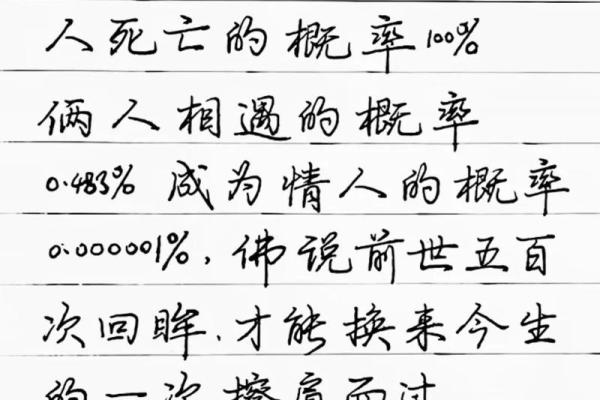 人死亡的概率100%
俩人相遇的概率
0.483%成为情人的概率
0.000001%,佛说前世五百
次回眸,才能换来今生
的一次擦肩而过